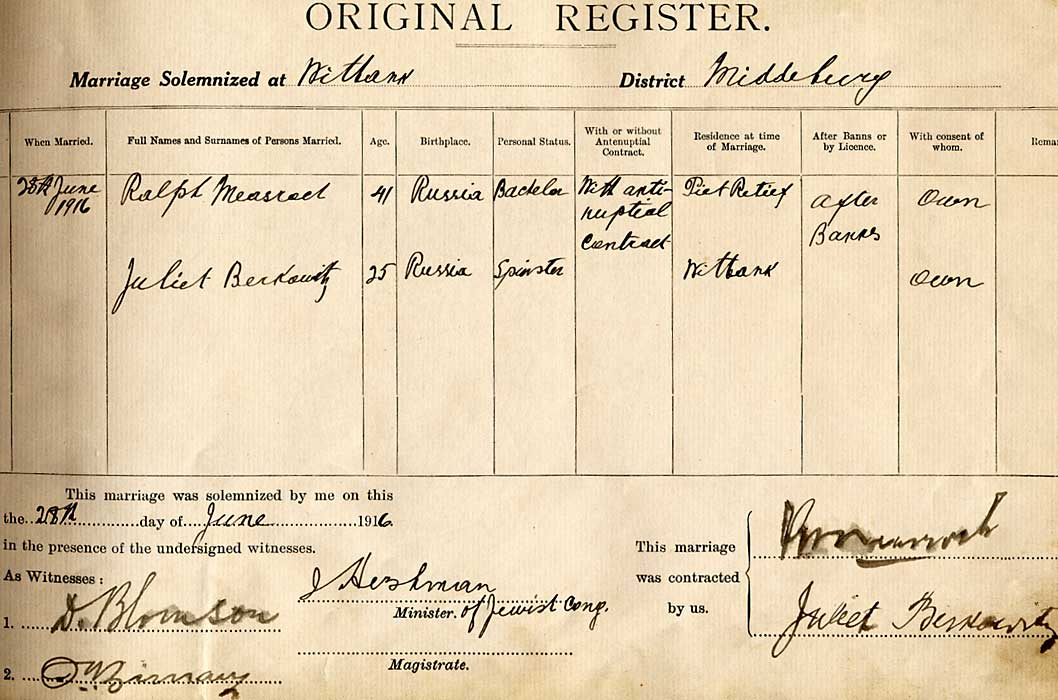 ORIGINAL REGISTER.
Marriage Solemnized at Witbank District Middelburg
When Married. Full Names and Surnames of Persons Married. Age. Birthplace. Personal Status. With or without Antenuptial Contract. Residence at time of Marriage. After Banns or by Licence. With consent of whom. Remar
28th June 1916 Ralph 41 Russia Bachelor With anti-nuptial Contract Piet Retief after Banns Own
Juliet Berkowitz 25 Russia Spinster Witbank Own
This marriage was solemnized by me on this
the 28th day of June 1916.
in the presence of the undersigned witnesses.
As Witnesses :
J Hershman
Minister. of Jewish Cong.
1.
Magistrate.
2.
This marriage
was contracted
by us.
Juliet Berkowitz